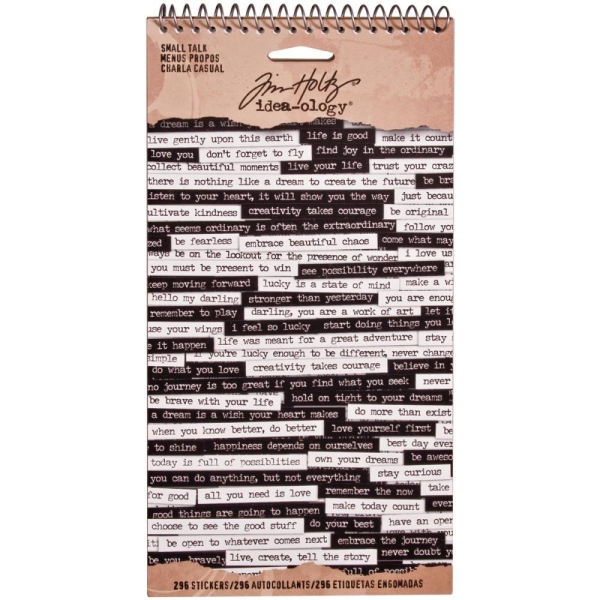 SMALL TALK
MENUS PROPOS
CHARLA CASUAL
Tim Holtz
idea-ology®
a dream is a wish makes
live gently upon this earth life is good make it count
love you don't forget to fly find joy in the ordinary
collect beautiful moments live your life trust your craz
there is nothing like a dream to create the future be bra
isten to your heart, it will show you the way just becau
ultivate kindness creativity takes courage be original
what seems ordinary is often the extraordinary follow you
zed be fearless embrace beautiful chaos come what may
ways be on the lookout for the presence of wonder i love us
you must be present to win see possibility everywhere
keep moving forward lucky is a state of mind make a wi
hello my darling stronger than yesterday you are enoug
remember to play darling, you are a work of art let it
use your wings i feel so lucky start doing things you l
e it happen life was meant for a great adventure stay
simple if you're lucky enough to be different, never change
do what you love creativity takes courage believe in
no journey is too great if you find what you seek never
be brave with your life hold on tight to your dreams
a dream is a wish your heart makes do more than exist
when you know better, do better love yourself first be
to shine happiness depends on ourselves best day ever
today is full of possiblities own your dreams be aweso
you can do anything, but not everything stay curious
for good all you need is love remember the now take
good things are going to happen make today count ever
choose to see the good stuff do your best have an open
be open to whatever comes next embrace the journey
be you bravely live, create, tell the story never doubt y
full of possib
296 STICKERS/296 AUTOCOLLANTS/296 ETIQUETAS ENGOMADAS